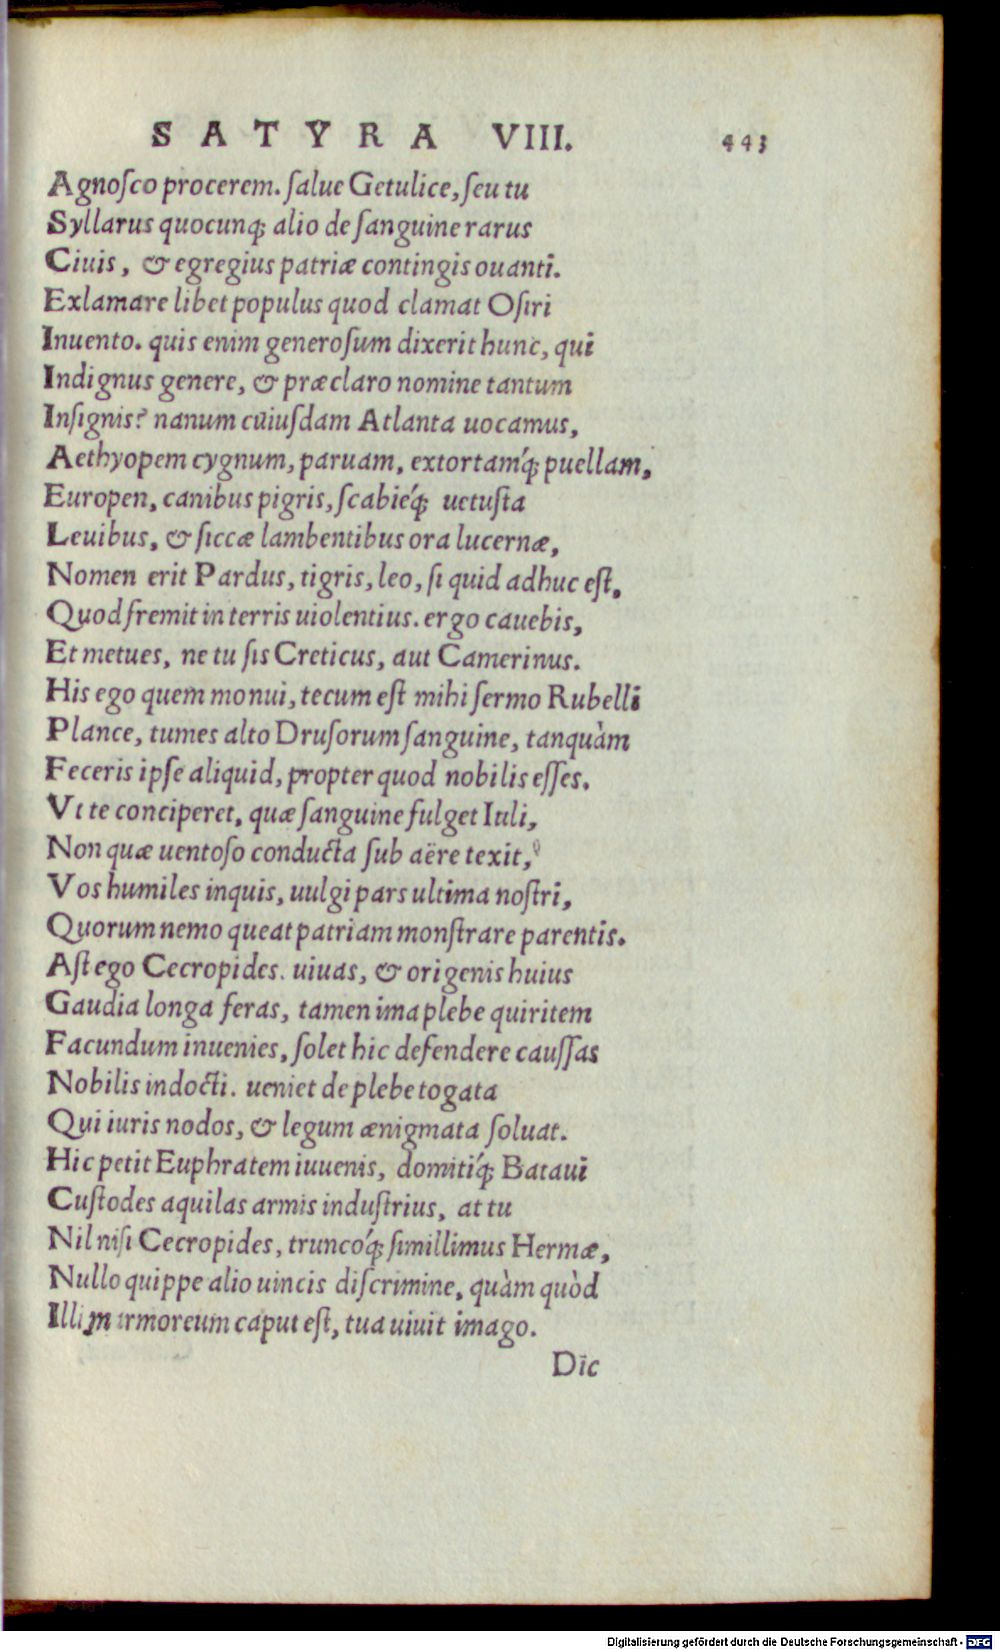 SATYRA VIII. 443
Agnoſco procerem. ſalue Getulice, ſeu tu
Syllarus quocunq; alio de ſanguine rarus
Ciuis, & egregius patriæ contingis ouanti.
Exlamare libet populus quod clamat Oſiri
Inuento. quis enim generoſum dixerit hunc, qui
Indignus genere, & præclaro nomine tantum
Inſignis? nanum cuiuſdam Atlanta uocamus,
Aethyopem cygnum, paruam, extortaḿq; puellam,
Europen, canibus pigris, ſcabié́q; uetuſta
Leuibus, & ſiccæ lambentibus ora lucernæ,
Nomen erit Pardus, tigris, leo, ſi quid adhuc eſt,
Quod fremit in terris uiolentius. ergo cauebis,
Et metues, ne tu ſis Creticus, aut Camerinus.
His ego quem monui, tecum eſt mihi ſermo Rubelli
Plance, tumes alto Druſorum ſanguine, tanquàm
Feceris ipſe aliquid, propter quod nobilis eſſes.
Vt te conciperet, quæ ſanguine fulget Iuli,
Non quæ uentoſo conducta ſub aëre texit,
Vos humiles inquis, uulgi pars ultima noſtri,
Quorum nemo queat patriam monſtrare parentis.
Aſt ego Cecropides. uiuas, & origenis huius
Gaudia longa feras, tamen ima plebe quiritem
Facundum inuenies, ſolet hic defendere cauſſas
Nobilis indocti. ueniet de plebe togata
Qui iuris nodos, & legum ænigmata ſoluat.
Hic petit Euphratem iuuenis, domitíq; Bataui
Cuſtodes aquilas armis induſtrius, at tu
Nil niſi Cecropides, truncóq; ſimillimus Hermæ,
Nullo quippe alio uincis diſcrimine, quàm quòd
Illi marmoreum caput eſt, tua uiuit imago.
Dic
Digitalisierung gefördert durch die Deutsche Forschungsgemeinschaft - DFG